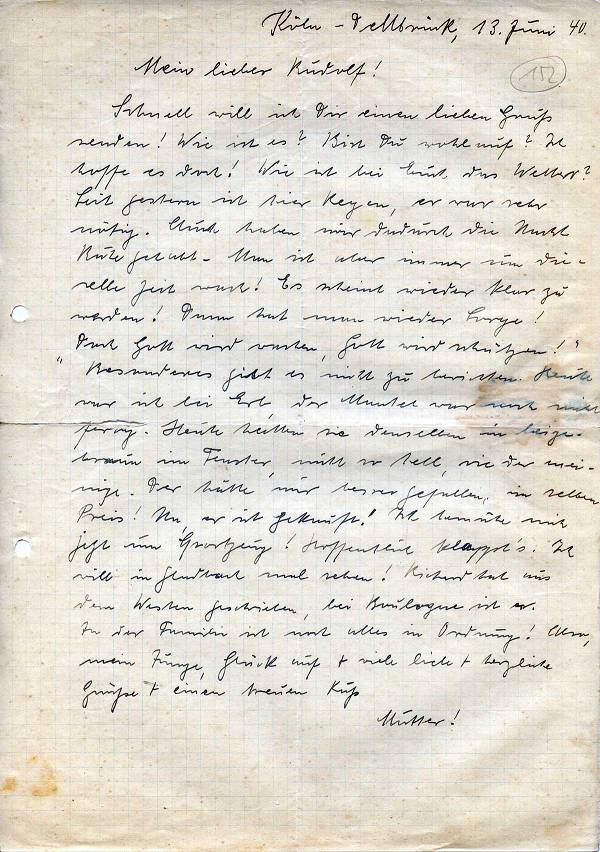 Köln-Dellbrück, 13. Juni 40.
152
Mein lieber Rudolf!
Schnell will ich Dir einen lieben Gruß
senden! Wie ist es? Bist Du wohlauf? Ich
hoffe es doch! Wie ist bei Euch das Wetter?
Seit gestern ist hier Regen, er war sehr
nötig. Auch haben wir dadurch die Nacht
Ruhe gehabt. Man ist aber immer um die-
selbe Zeit wach! Es scheint wieder klar zu
werden! Dann hat man wieder Sorge!
Doch Gott wird wachen, Gott wird schützen!"
"Besonderes gibt es nicht zu berichten. Heute
war ich bei Erb, der Mantel war noch nicht
fertig. Heute hatten sie denselben in beige-
braun im Fenster, nicht so hell, wie der mei-
nige. Der hätte mir besser gefallen, im selben
Preis! Na, er ist gekauft! Ich bemühe mich
jetzt um Sportzeug! Hoffentlich klappt's. Ich
will in Gladbach mal sehen! Richard hat aus
dem Westen geschrieben, bei Boulogne ist er.
In der Familie ist noch alles in Ordnung! Also,
mein Junge, Glück auf + viele liebe + herzliche
Grüße + einen treuen Kuß
Mutter!